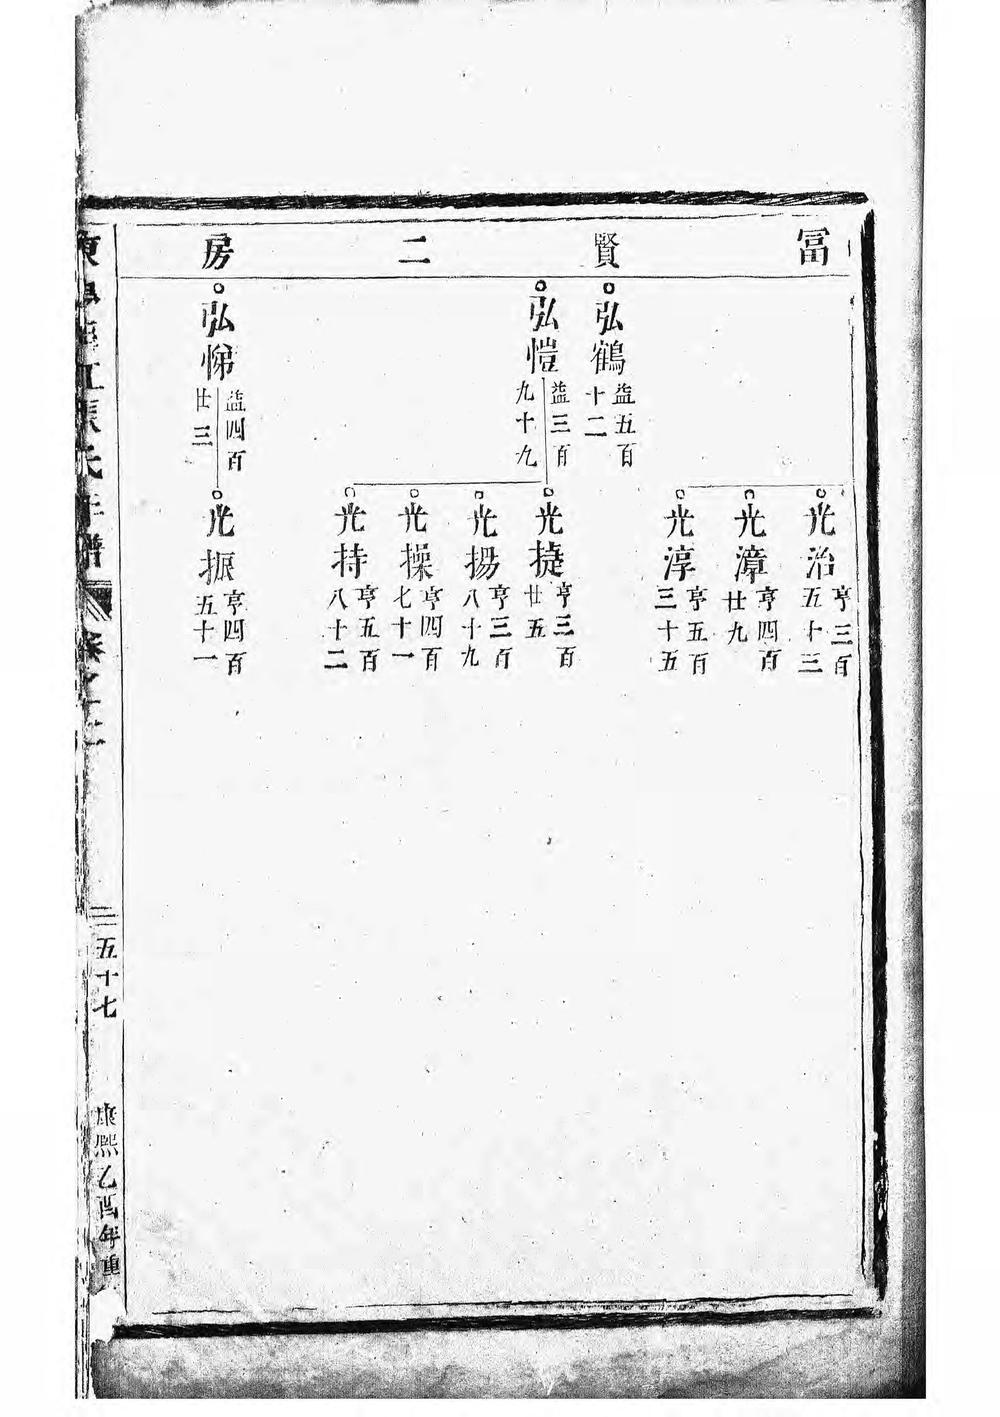 冨賢二房
弘鶴
益五百
十二
弘愷
益三百
九十九
弘悌
益四百
廿三
光治
亨三百
五十三
光漳
亨四百
廿九
光淳
亨五百
三十五
光㨗
亨三百
廿五
光揚
亨三百
八十九
光操
亨四百
七十一
光持
亨五百
八十二
光振
亨四百
五十一
張氏
譜
卷之二
五十七
康熙乙酉年重